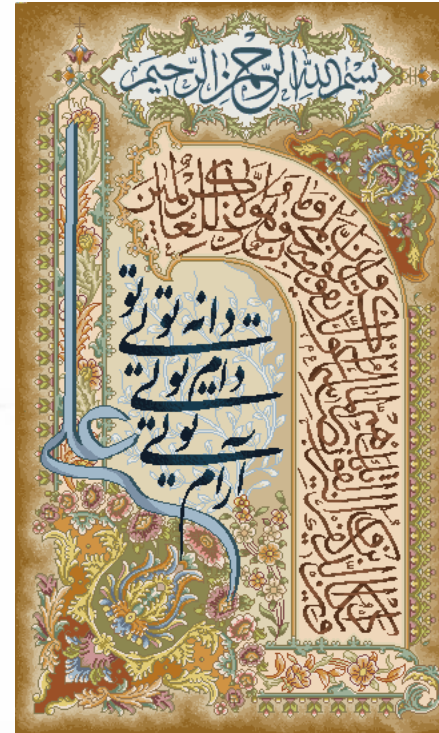 بسم الله الرحمن الرحيم
وان يكاد الذين كفروا ليزلقونك بابصارهم لما سمعوا الذكر ويقولون انه لمجنون وما هو الا ذكر للعالمين
دانه تویی تو
دام تویی
تویی
آرام
علی